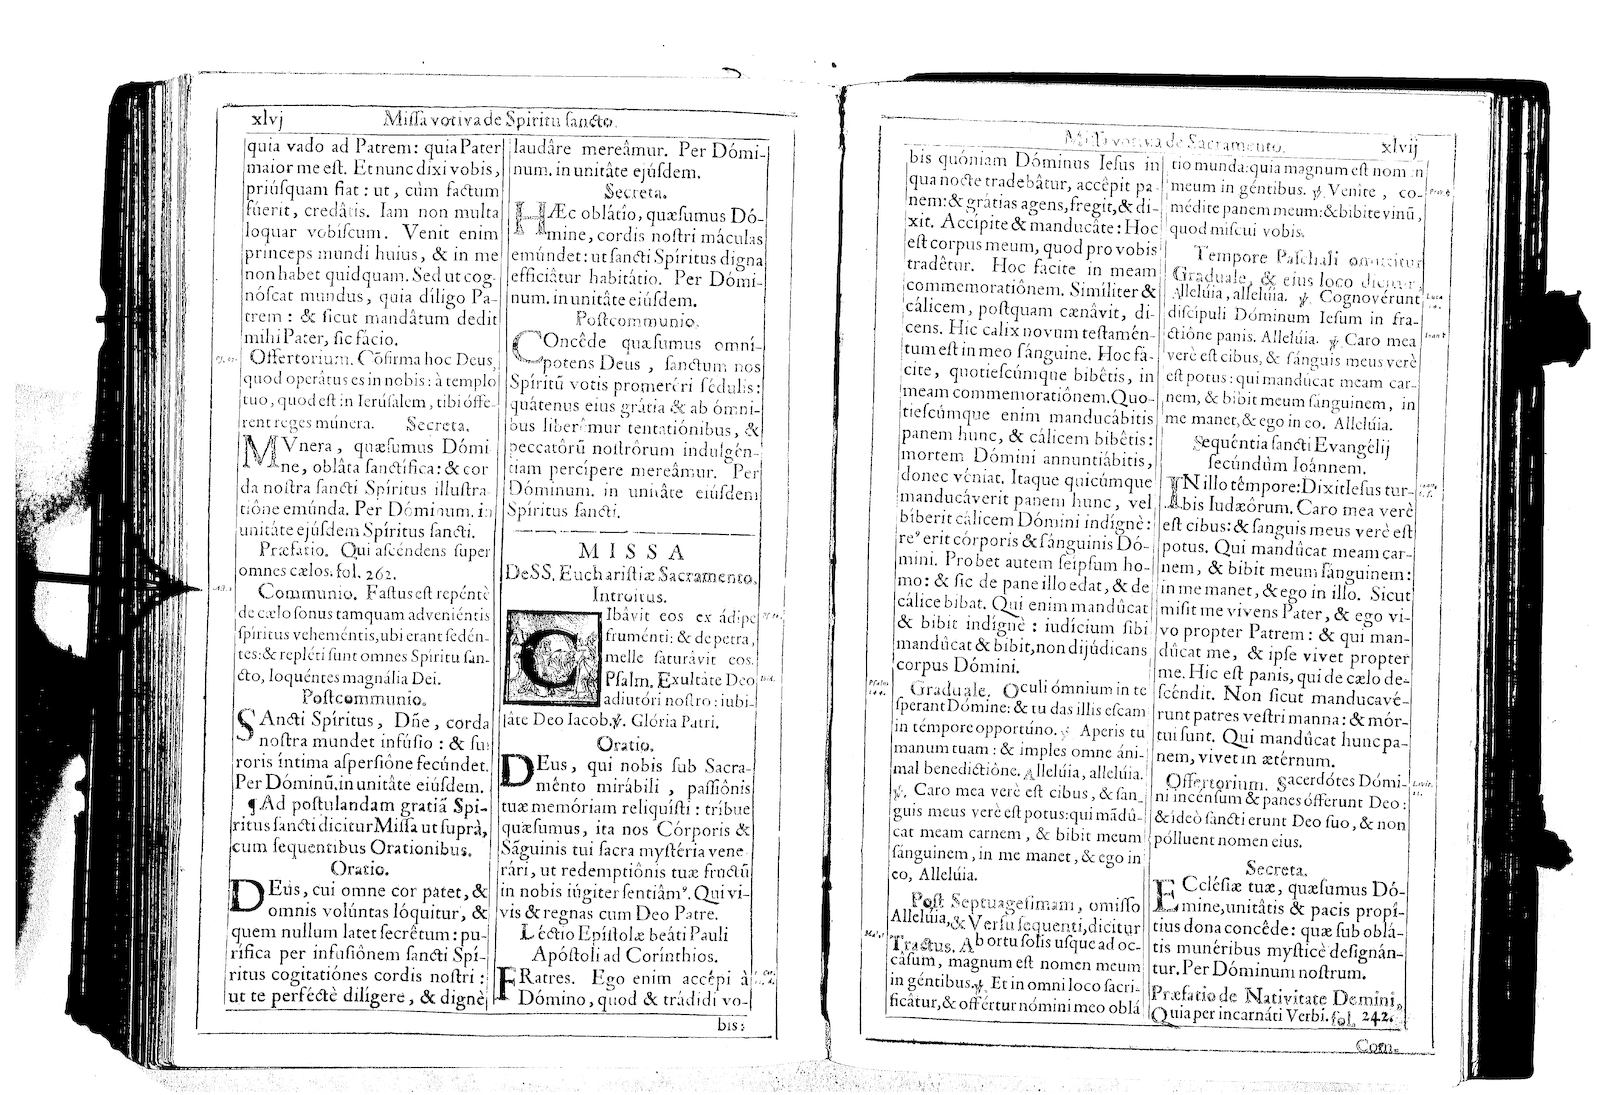 xlvj
Missa votiva de Spiritu sancto.
quia vado ad Patrem: quia Pater
maior me est. Et nunc dixi vobis,
priúsquam fiat: ut, cùm factum
fúerit, credâtis. Iam non multa
loquar vobiscum. Venit enim
princeps mundi huius, & in me
non habet quidquam. Sed ut cog-
nóscat mundus, quia díligo Pa-
trem: & sicut mandâtum dedit
mihi Pater, sic fácio.
Offertorium. Cõfirma hoc Deus,
quod operâtus es in nobis: à templo
tuo, quod est in Ierúsalem, tibi óffe-
rent reges múnera. Secreta.
MVnera, quæsumus Dómi
ne, oblâta sanctífica: & cor
da nostra sancti Spíritus illustra
tiône emúnda. Per Dóminum. in
unitâte ejúsdem Spíritus sancti.
Præfatio. Qui ascéndens super
omnes cælos. fol. 262.
Communio. Factus est repéntè
de cælo sonus tamquam adveniéntis
spíritus veheméntis, ubi erant sedén-
tes: & repléti sunt omnes Spíritu san-
cto, loquéntes magnália Dei.
Postcommunio.
SAncti Spíritus, Dñe, corda
nostra mundet infúsio: & su:
roris íntima aspersiône fecúndet.
Per Dóminũ. in unitâte eiúsdem.
¶ Ad postulandam gratiã Spi-
ritus sancti dicitur Missa ut suprà,
cum sequentibus Orationibus.
Oratio.
DEus, cui omne cor patet, &
omnis volúntas lóquitur, &
quem nullum latet secrêtum: pu-
rífica per infusiônem sancti Spí-
ritus cogitatiónes cordis nostri:
ut te perféctè dilígere, & dignè
laudâre mereâmur. Per Dómi-
num. in unitâte ejúsdem.
Secreta.
HÆc oblátio, quæsumus Dó-
mine, cordis nostri máculas
emúndet: ut sancti Spíritus digna
efficiâtur habitátio. Per Dómi-
num. in unitâte eiúsdem.
Postcommunio.
COncêde quæsumus omní-
potens Deus, sanctum nos
Spíritũ votis promeréri sédulis:
quátenus eius grátia & ab ómni-
bus liberêmur tentatiónibus, &
peccatôrũ nostrôrum indulgén-
tiam percípere mereâmur. Per
Dóminum. in unitâte eiúsdem
Spíritus sancti.
MISSA
De SS. Eucharistiæ Sacramento.
Introitus.
CIbâvit eos ex ádipe
fruménti: & de petra,
melle saturâvit eos.
Psalm. Exultâte Deo
adiutóri nostro: iubi-
lâte Deo Iacob. ℣. Glória Patri.
Oratio.
DEus, qui nobis sub Sacra-
mênto mirábili, passiônis
tuæ memóriam reliquísti: tríbue
quæsumus, ita nos Córporis &
Sãguinis tui sacra mystéria vene
rári, ut redemptiônis tuæ fructũ
in nobis iúgiter sentiâmꝰ. Qui vi-
vis & regnas cum Deo Patre.
Léctio Epístolæ beáti Pauli
Apóstoli ad Corínthios.
FRatres. Ego enim accépi à
Dómino, quod & trádidi vo-
bis:
Missa votiva de Sacramento.
xlvij
bis quóniam Dóminus Iesus in
qua nocte tradebâtur, accêpit pa-
nem: & grátias agens, fregit, & di-
xit. Accípite & manducâte: Hoc
est corpus meum, quod pro vobis
tradêtur. Hoc facite in meam
commemoratiônem. Simíliter &
cálicem, postquam cænâvit, di-
cens. Hic calix novum testamên-
tum est in meo sánguine. Hoc fá-
cite, quotiescúmque bibêtis, in
meam commemoratiônem. Quo-
tiescúmque enim manducábitis
panem hunc, & cálicem bibêtis:
mortem Dómini annuntiábitis,
donec véniat. Itaque quicúmque
manducáverit panem hunc, vel
bíberit cálicem Dómini indígnè:
reꝰ erit córporis & sánguinis Dó-
mini. Probet autem seípsum ho-
mo: & sic de pane illo edat, & de
cálice bibat. Qui enim mandûcat
& bibit indígnè: iudícium sibi
mandûcat & bibit, non dijúdicans
corpus Dómini.
Psalm.
144.
Graduale. Oculi ómnium in te
sperant Dómine: & tu das illis escam
in témpore opportúno. ℣. Aperis tu
manum tuam: & imples omne áni-
mal benedictiône. Allelúia, allelúia.
℣. Caro mea verè est cibus, & san
guis meus verè est potus: qui mãdû-
cat meam carnem, & bibit meum
sánguinem, in me manet, & ego in
eo, Allelúia.
Post Septuagesimam, omisso
Allelúia, & Versu sequenti, dicitur
Tractus. Ab ortu solis usque ad oc-
câsum, magnum est nomen meum
in géntibus. ℣. Et in omni loco sacri-
ficâtur, & offértur nómini meo oblá
tio munda: quia magnum est nomen
meum in géntibus. ℣. Venite, co-
médite panem meum: & bibite vinũ,
quod miscui vobis.
Tempore Paschali omittitur
Graduale, & eius loco dicitur,
Allelúia, allelúia. ℣. Cognovérunt
discípuli Dóminum Iesum in fra-
ctiône panis. Allelúia. ℣. Caro mea
verè est cibus, & sánguis meus verè
est potus: qui mandúcat meam car-
nem, & bibit meum sánguinem, in
me manet, & ego in eo. Allelúia.
Sequéntia sancti Evangélij
secúndùm Ioánnem.
IN illo témpore: Dixit Iesus tur-
bis Iudæórum. Caro mea verè
est cibus: & sanguis meus verè est
potus. Qui mandûcat meam car-
nem, & bibit meum sánguinem:
in me manet, & ego in illo. Sicut
misit me vivens Pater, & ego vi-
vo propter Patrem: & qui man-
dûcat me, & ipse vivet propter
me. Hic est panis, qui de cælo de-
scéndit. Non sicut manducavé-
runt patres vestri manna: & mór-
tui sunt. Qui mandûcat hunc pa-
nem, vivet in ætérnum.
Offertorium. Sacerdótes Dómi-
ni incénsum & panes ófferunt Deo:
& ideò sancti erunt Deo suo, & non
pólluent nomen eius.
Secreta.
ECclésiæ tuæ, quæsumus Dó-
mine, unitâtis & pacis propí-
tius dona concêde: quæ sub oblá-
tis munéribus mysticè designán-
tur. Per Dóminum nostrum.
Præfatio de Nativitate Domini,
Quia per incarnáti Verbi. fol. 242.
Com-